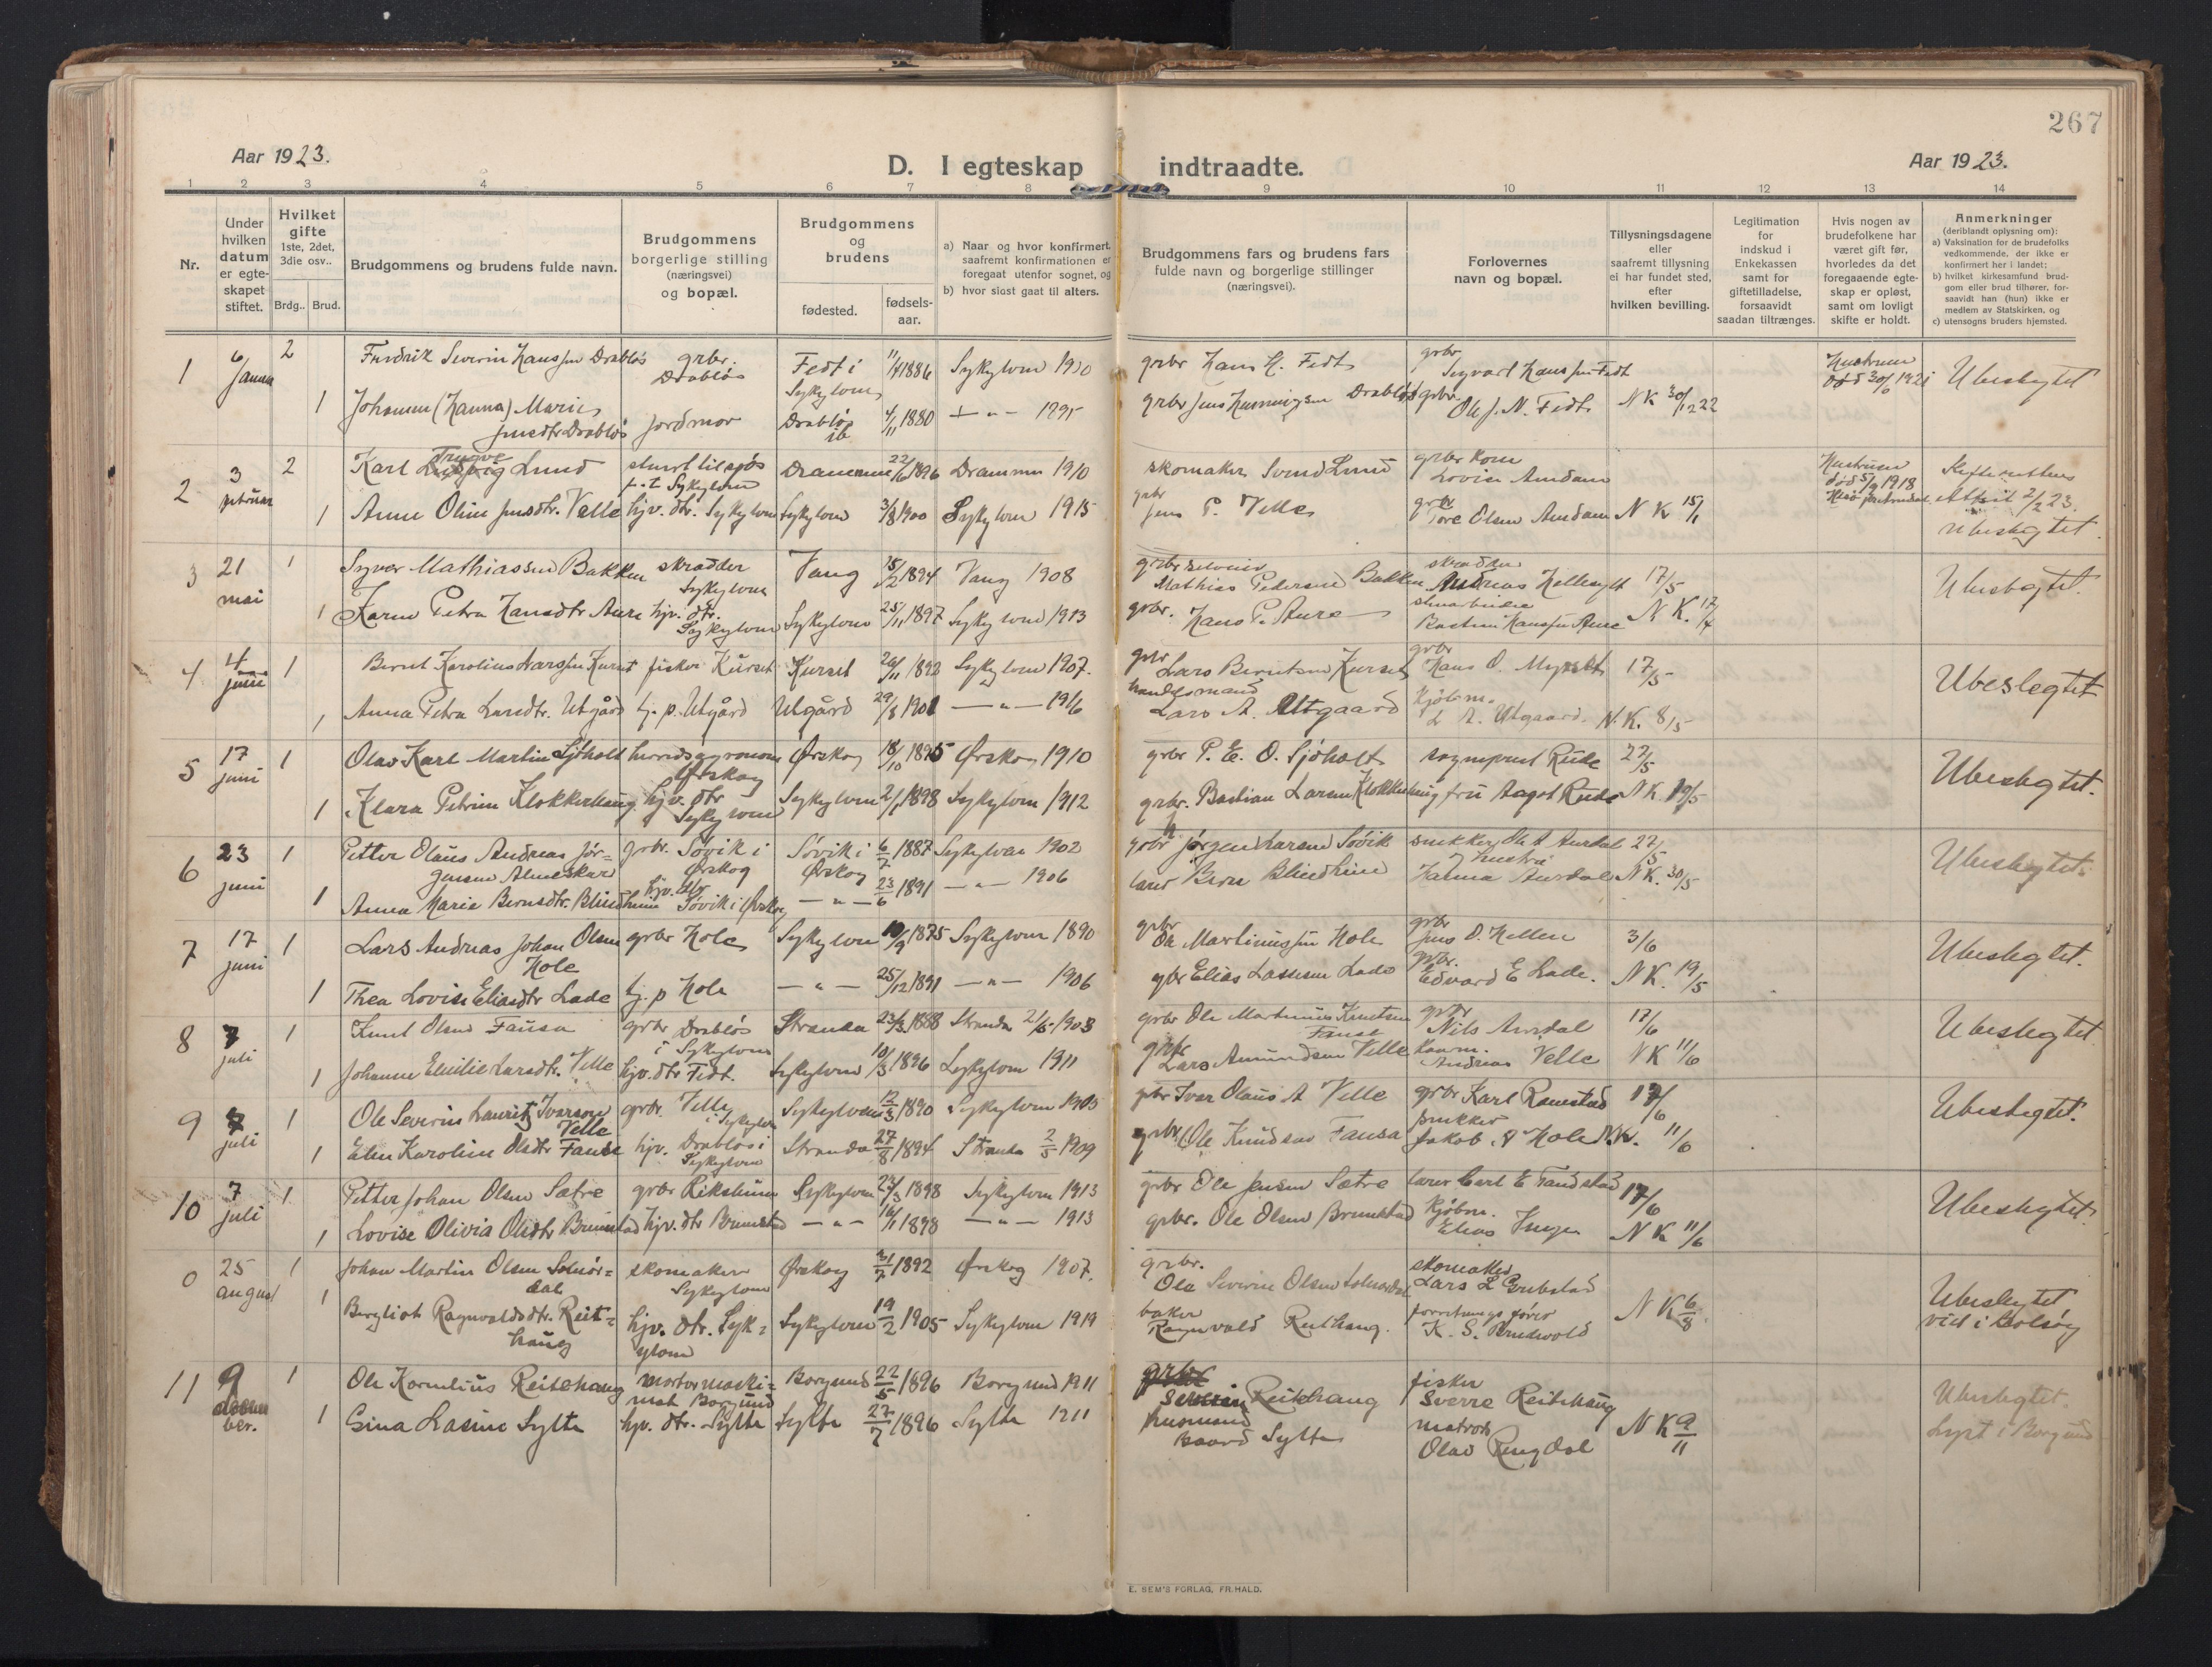 267
Aar 1923.
D. I egteskap indtraadte.
Aar 1923.
1 2 3 4 5 6 7 8 9 10 11 12 13 14
Nr.
Under hvilken datum er egte-skapet stiftet.
Hvilket gifte 1ste, 2det, 3die osv..
Brdg.. Brud.
Brudgommens og brudens fulde navn.
Brudgommens borgerlige stilling (næringsvei) og bopæl.
Brudgommens og brudens
fødested.
fødsels-aar.
a) Naar og hvor konfirmert, saafremt konfirmationen er foregaat utenfor sognet, og
b) hvor sidst gaat til alters.
Brudgommens fars og brudens fars fulde navn og borgerlige stillinger (næringsvei).
Forlovernes navn og bopæl.
Tillysningsdagene eller saafremt tillysning ei har fundet sted, efter hvilken bevilling.
Legitimation for indskud i Enkekassen samt for giftetilladelse, forsaavidt saadan tiltrænges.
Hvis nogen av brudefolkene har været gift før, hvorledes da det foregaaende egte-skap er opløst, samt om lovligt skifte er holdt.
Anmerkninger (deriblandt oplysning om):
a) Vaksination for de brudefolks vedkommende, der ikke er konfirmert her i landet;
b) hvilket kirkesamfund brud-gom eller brud tilhører, for-saavidt han (hun) ikke er medlem av Statskirken, og
c) utensogns bruders hjemsted.
1 6 2 Severin Hanssen Drabløs grbr. Drabløs Fedt i Sykylven 1886 Sykylven 1900 grbr Hans H. Fedt grbr Hanssen Fedt
1 Johanne (Hanna) Marie Jensdtr Drabløs jordmor Drabløs ib 4/11 1880 — " — 1895 grbr Jens Drabløs grbr. Ole J. N. Fedt NK 30/12 22 Hustruen død 30/6 1921 Ubeslegtet
2 3 februar 2 Karl Trygve Lund styrt tilsjøs p.t. Sykylven Drammen 22/6 1896 Drammen 1910 skomaker Svend Lund grbr kone Lovise Aurdam Hustruen død 5/9 1918
1 Anne Oline Jensdtr. Velle hjv. dtr. Sykylven Sykylven 3/8 1900 Sykylven 1915 grbr Jens P. Velle grbr Tore Olsen Aurdam NK 15/1 2/2 23. Ubeslegtet
3 21 mai 1 Syver Mathiassen Bakken skrædder Sykylven Vang 15/2 1894 Vang 1908 Mathias Pedersen Bakken skrædder Andreas Hellesylt 17/5
1 Karen Petra Hansdtr Aure hjv. dtr. Sykylven Sykylven 25/11 1897 Sykylven 1913 grbr. Hans P. Aure Bastian Hanssen Aure N.K. 17/4 Ubeslegtet.
4 4 juni 1 Bernt Karolius Larssen Kurset fisker Kurset Kurset 26/11 1892 Sykylven 1907. grbr Lars Berntsen Kurset grbr Hans O. Myrseth 17/5
1 Anna Petra Larsdtr. Utgård tj. p. Utgård Utgård 29/8 1901 — " — 1916 handelsmand Lars A. Utgaard Kjøbm. L A. Utgaard. N.K. 8/5 Ubeslegtet
5 17 juni 1 Olav Karl Martin Sjøholt herredsagronom Ørskog Ørskog 18/10 1895 Ørskog 1910 grbr P. E. O. Sjøholt sogneprest Rude 22/5
1 Klara Petrine Klokkerhaug hjv. dtr Sykylven Sykylven 2/1 1898 Sykylven 1912 grbr. Bastian Larsen Klokkerhaug fru Aagot Rude N K. 19/5 Ubeslegtet.
6 23 juni 1 Petter Olaus Andreas Jør=gensen Almeskar grbr. Søvik i Ørskog Søvik i Ørskog 6/7 1887 Sykylven 1902 grbr Jørgen Larsen Søvik snekker Ole A Aurdal 27/5
1 Anna Marie Bernsdtr. Blindheim hjv. dtr Søvik i Ørskog — " — 23/6 1891 — " — 1906 lærer Bern Blindheim hustru Aurdal N K. 30/5 Ubeslegtet.
7 17 juni 1 Lars Andreas Johan Olsen Hole grbr Hole Sykylven 10/9 1875 Sykylven 1890 grbr Ole Martinussen Hole grbr Jens O. Hellen 3/6
1 Thea Lovise Eliasdtr Lade tj. p Hole — " — 25/12 1891 — " — 1906 grbr Elias Lassesen Lade grbr. Edvard E Lade. N K. 19/5 Ubeslegtet.
8 7 juli 1 Knut Olsen Fausa grbr Drabløs i Sykylven Stranda 23/3 1888 Stranda 21/5 1903 grbr Ole Martinus Knutsen Fausa grbr Nils Aurdal 17/6
1 Johanne Emilie Larsdtr. Velle hjv. dtr Fedt. Sykylven 10/3 1896 Sykylven 1911 grbr Lars Amundsen Velle Kaarm. Andreas Velle NK 11/6 Ubeslegtet
9 7 juli 1 Ole Severin Lauritz Ivarson Velle grbr. Velle i Sykylven Sykylven 12/3 1890 Sykylven 1905 grbr Ivar Olaus A Velle grbr Karl Ramstad 17/6
1 Karoline Olsdtr Fausa hjv. Drabløs i Sykylven Stranda 27/8 1894 Stranda 2/5 1909 grbr Ole Knudsen Fausa snekker Jakob Hole N.K. 11/6 Ubeslegtet.
10 7 juli 1 Petter Johan Olsen Sætre grbr Riksheim Sykylven 23/3 1898 Sykylven 1913 grbr Ole Jensen Sætre lærer Carl E Tandstad 17/6
1 Lovise Olivia Olsdtr Brunstad hjv. dtr Brunstad — " — 16/11 1898 — " — 1913 grbr. Ole Olsen Brunstad Kjøbm. Elias N K 11/6 Ubeslegtet.
0 25 august 1 Johan Martin Olsen Solnør=dal skomaker Sykylven Ørskog 31/7 1892 Ørskog 1907. grbr. Ole Severin Olsen Solnørdal skomaker Lars L Grebstad
1 Bergliot Ragnvaldsdtr. Reit=haug hjv. dtr. Syk=ylven Sykylven 19/2 1905 Sykylven 1919 baker Ragnvald Reithaug. forretningsfører K. S. Brudevold N K 6/8 Ubeslegtet viet i Bolsøy
11 9 december. 1 Ole Kornelius Reitehaug Borgund Borgund 22/5 1896 Borgund 1911 grbr Severin Reitehaug fisker Sverre Reitehaug
1 Gina Lasine Sylte hjv. dtr. Sylte Sylte 27/7 1896 Sylte 1911 husmand Baard Sylte matros Olav Ringdal N K 9/11 Ubeslegtet. Lyst i Borgund
E. SEM'S FORLAG, FR.HALD.